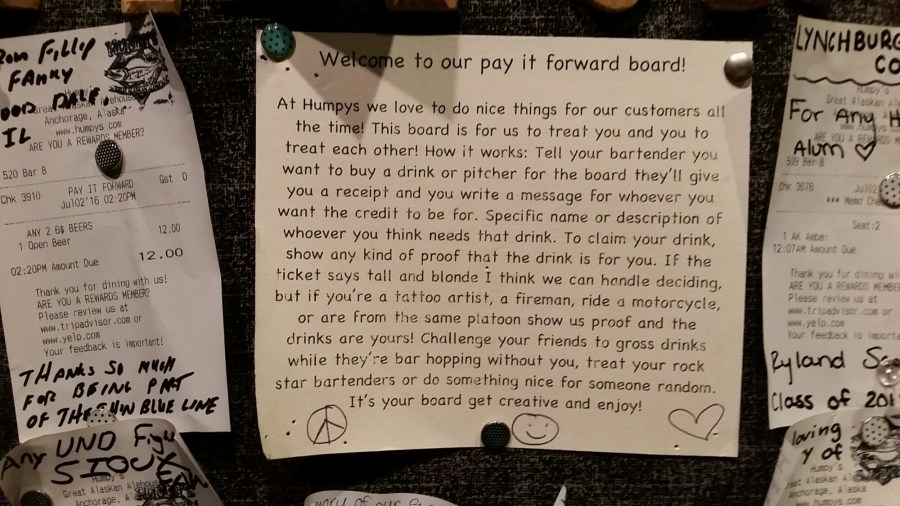 Welcome to our pay it forward board!
At Humpys we love to do nice things for our customers all
the time! This board is for us to treat you and you to
treat each other! How it works: Tell your bartender you
want to buy a drink or pitcher for the board they'll give
you a receipt and you write a message for whoever you
want the credit to be for. Specific name or description of
whoever you think needs that drink. To claim your drink,
show any kind of proof that the drink is for you. If the
ticket says tall and blonde I think we can handle deciding,
but if you're a tattoo artist, a fireman, ride a motorcycle,
or are from the same platoon show us proof and the
drinks are yours! Challenge your friends to gross drinks
while they're bar hopping without you, treat your rock
star bartenders or do something nice for someone random.
It's your board get creative and enjoy!
IL
Anchorage, Alaska
www.humpys.com
ARE YOU A REWARDS MEMBER?
520 Bar B
Chk 3910 PAY IT FORWARD Gst 0
Jul02'16 02:20PM
ANY 2 6$ BEERS 12.00
1 Open Beer
02:20PM Amount Due 12.00
Thank you for dining with us!
ARE YOU A REWARDS MEMBER?
Please review us at
www.tripadvisor.com or
www.yelp.com
Your feedback is important!
THANKS SO MUCH
FOR BEING PART
OF THE THIN BLUE LINE
Any UND
SIOUX
Great Alaskan
Anchorage,
LYNCHBURG
CO
Humpy's
Great Alaskan
For Any H
Alum
Bar B
Chk 3676
Seat:2
1 AK Amber
12:07AM Amount Due
Thank you for dining
ARE YOU A REWARDS
Please review us at
www.tripadvisor.com
www.yelp.com
Your feedback is
Ryland
Class of 201
loving
y of
Humpy's
Great Alaskan
Anchorage,
www.humpys.com